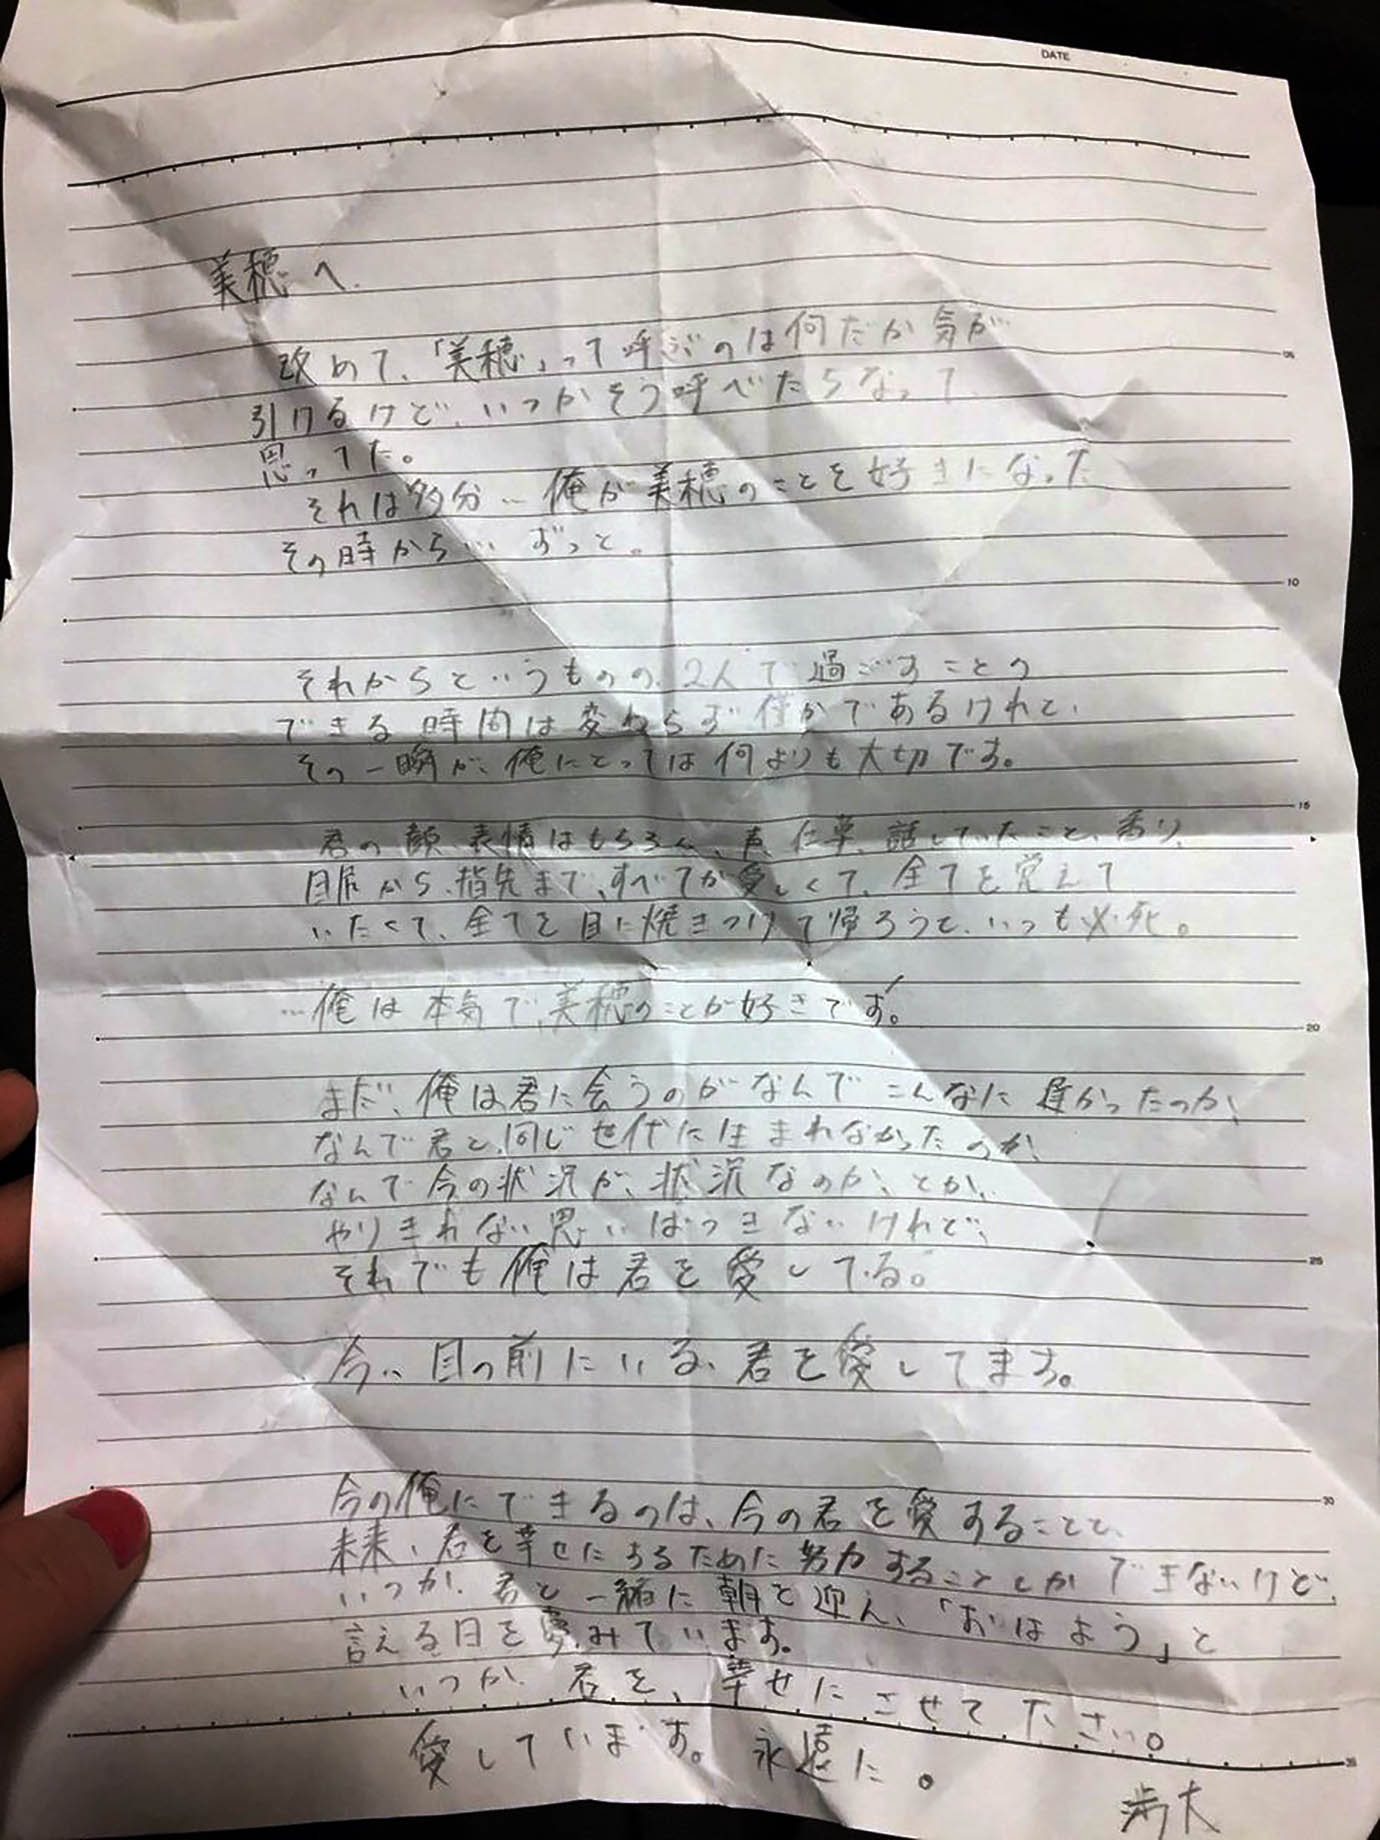 DATE
美穂へ
改めて、「美穂」って呼ぶのは何だか気が
引けるけど、いつかそう呼べたらなって
思ってた。
それは多分…俺が美穂のことを好きになった
その時から…ずっと。
05
10
それからというものの、2人で過ごすことの
できる時間は変わらず僅かであるけれど、
その一瞬が、俺にとっては何よりも大切です。
15
君の顔、表情はもちろん、声、仕草、話していたこと、香り、
目尻から、指先まで、すべてが愛しくて、全てを覚えて
いたくて、全てを目に焼きつけて帰ろうと、いつも必死。
…俺は本気で、美穂のことが好きです。
20
まだ、俺は君に会うのがなんでこんなに遅かったのか、
なんで君と、同じ世代に生まれなかったのか、
なんで今の状況が、状況なのか、とか、
やりきれない思いはつきないけれど、
それでも俺は君を愛してる。
25
今、目の前にいる、君を愛してます。
今の俺にできるのは、今の君を愛することと、
30
未来、君を幸せにするために努力することしかできないけど、
いつか、君と一緒に朝を迎え、「おはよう」と
言える日を夢みています。
いつか、君を、幸せにさせてください。
愛しています。永遠に。
35
太